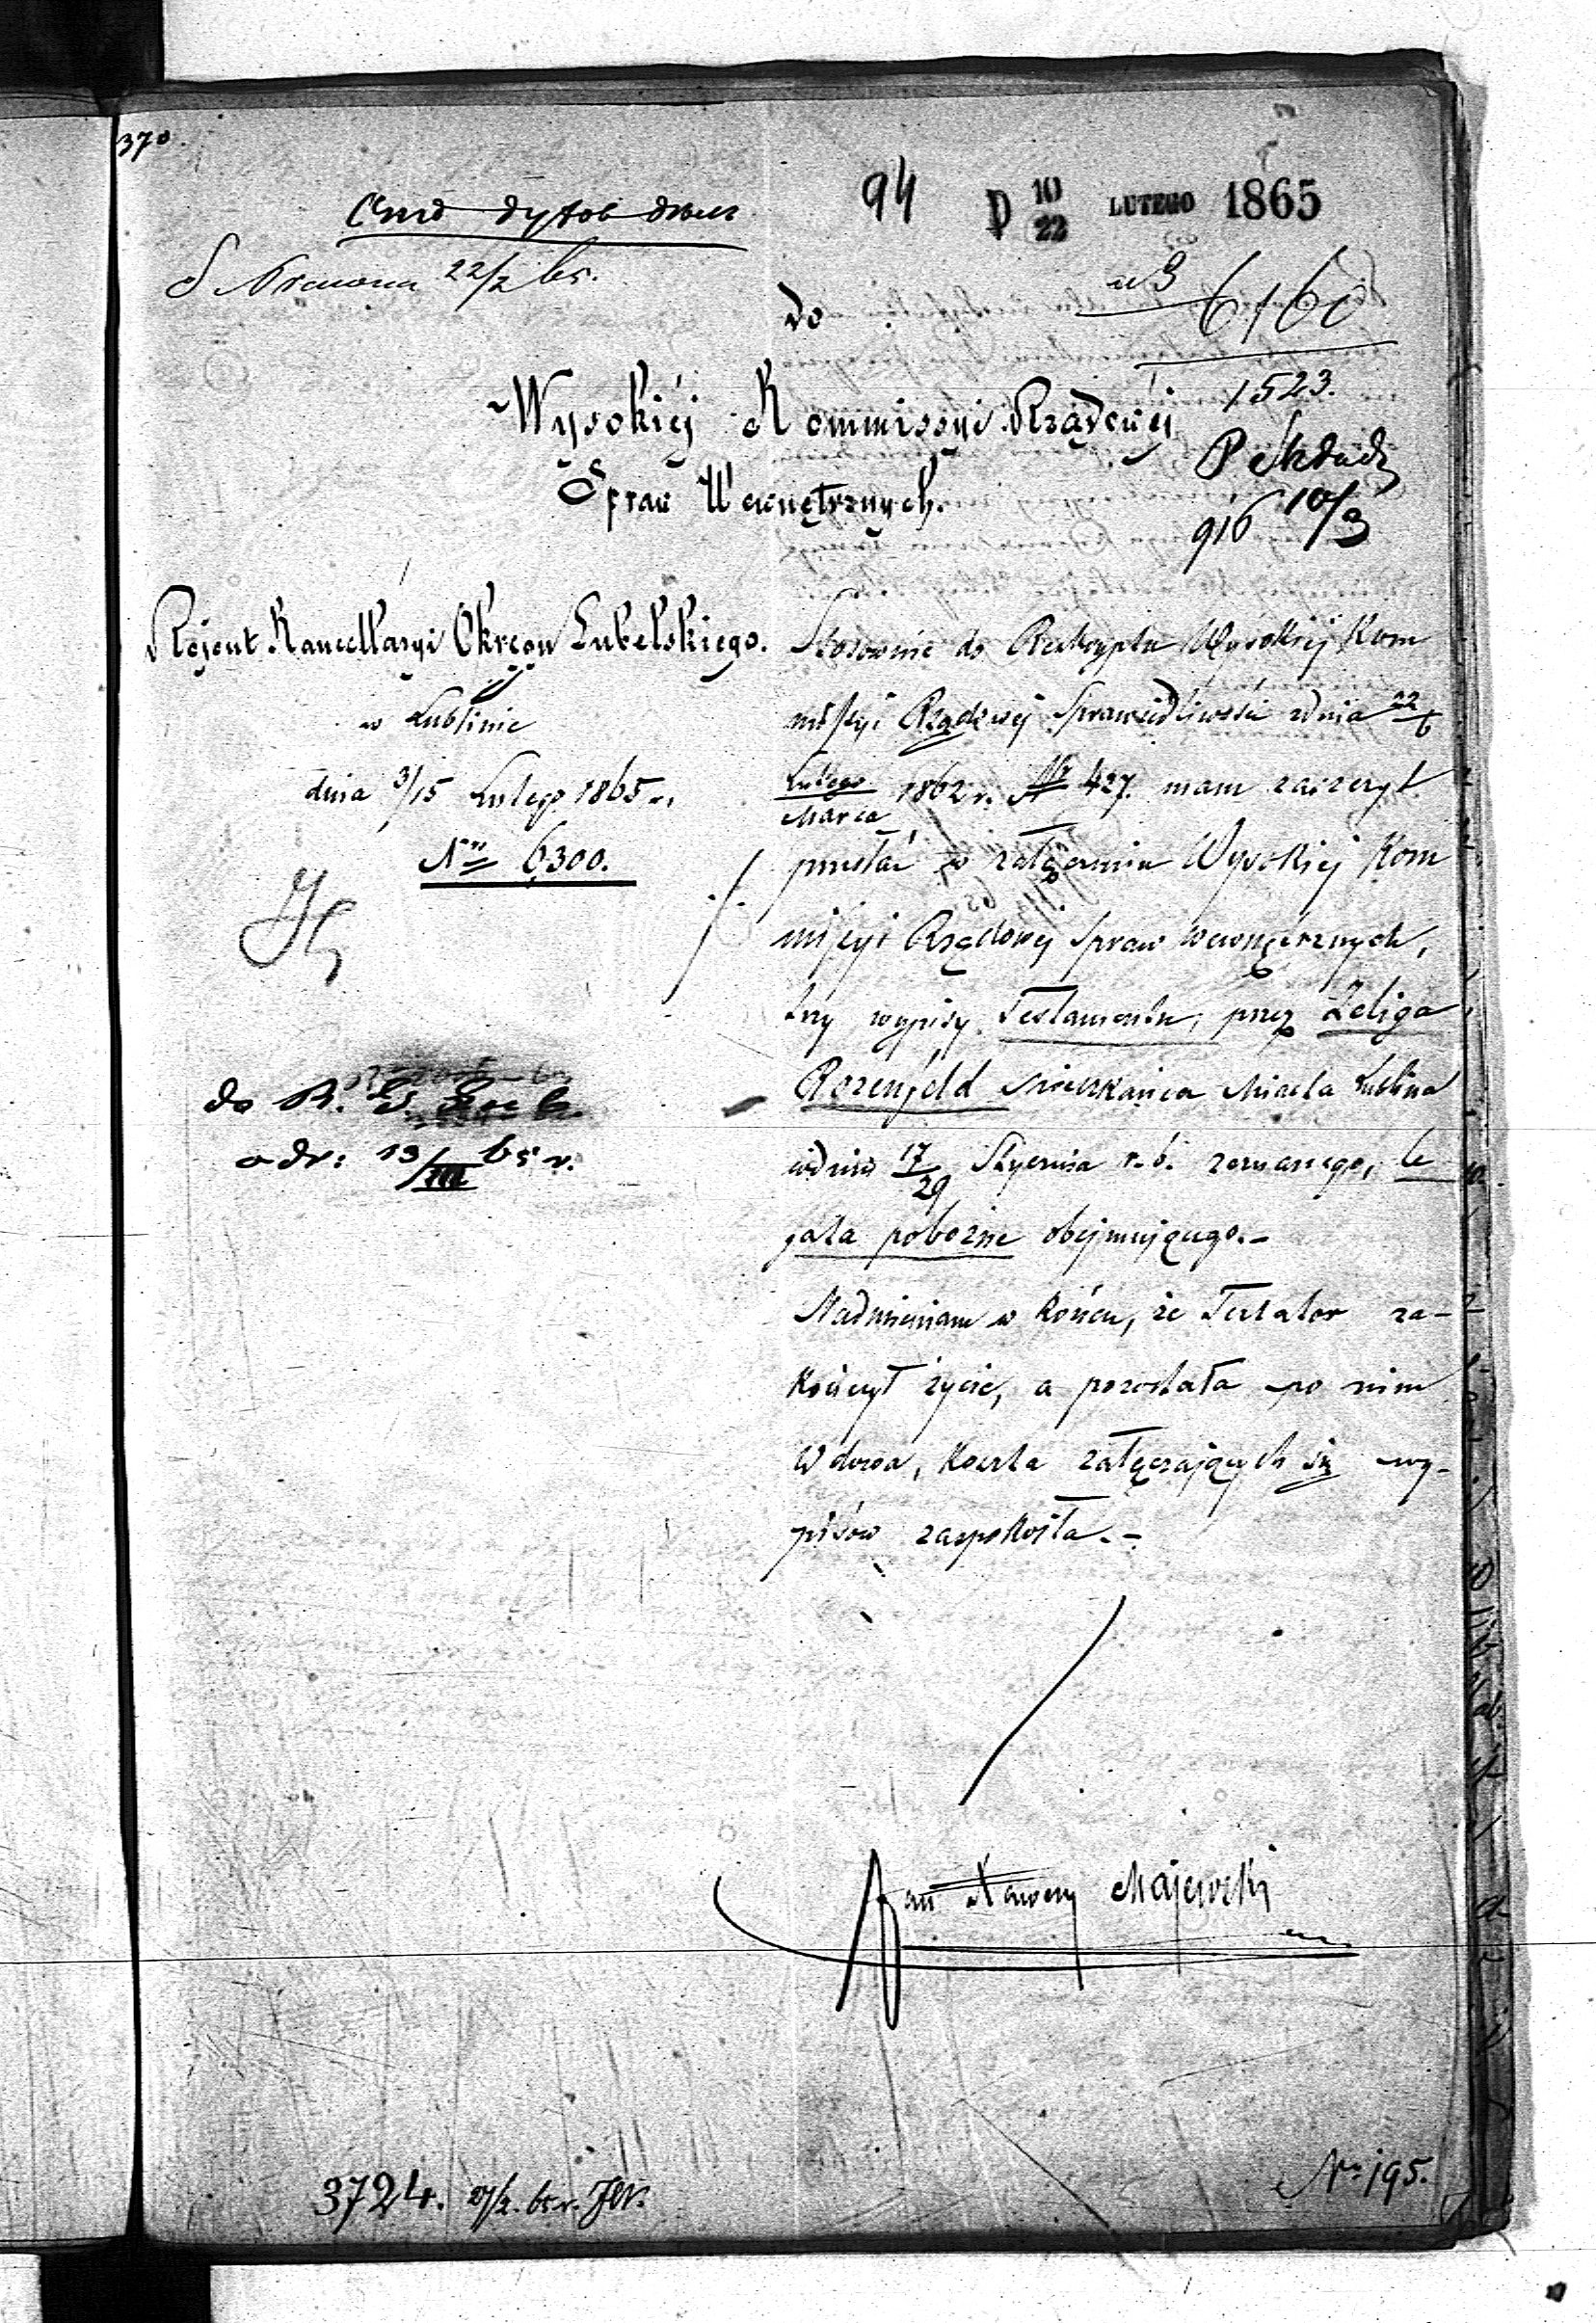 370.
94
D 10/22 LUTEGO 1865
22/2 65.
do
6160
1523.
Wysokiéj Kommissyi Rządowéj
Spraw Wewnętrznych.
916 10/3
Rejent Kancellaryi Okręgu Lubelskiego.
w Lublinie
dnia 3/15 Lutego 1865 r.
No 6,300.
Stosownie do Reskryptu Wysokiej Kom
missyi Rządowej Sprawiedliwości z dnia 22/6
Lutego/Marca 1862 r. No 427. mam zaszczyt
przesłać w załączeniu Wysokiej Kom
missyi Rządowej Spraw Wewnętrznych,
trzy wypisy Testamentu, przez Zeliga
Rozenfeld Mieszkańca Miasta Lublina
w dniu 17/29 Stycznia r. b. zeznanego, le
gata pobożne obejmującego.-
Nadmieniam w końcu, że Testator za-
kończył życie, a pozostała po nim
Wdowa, koszta załączających się wy-
pisów zaspokoiła.-
do R.
odr: 13/III 65 r.
Jan Xawery Majewski
3724. 27/2. 65 r.
No 195.